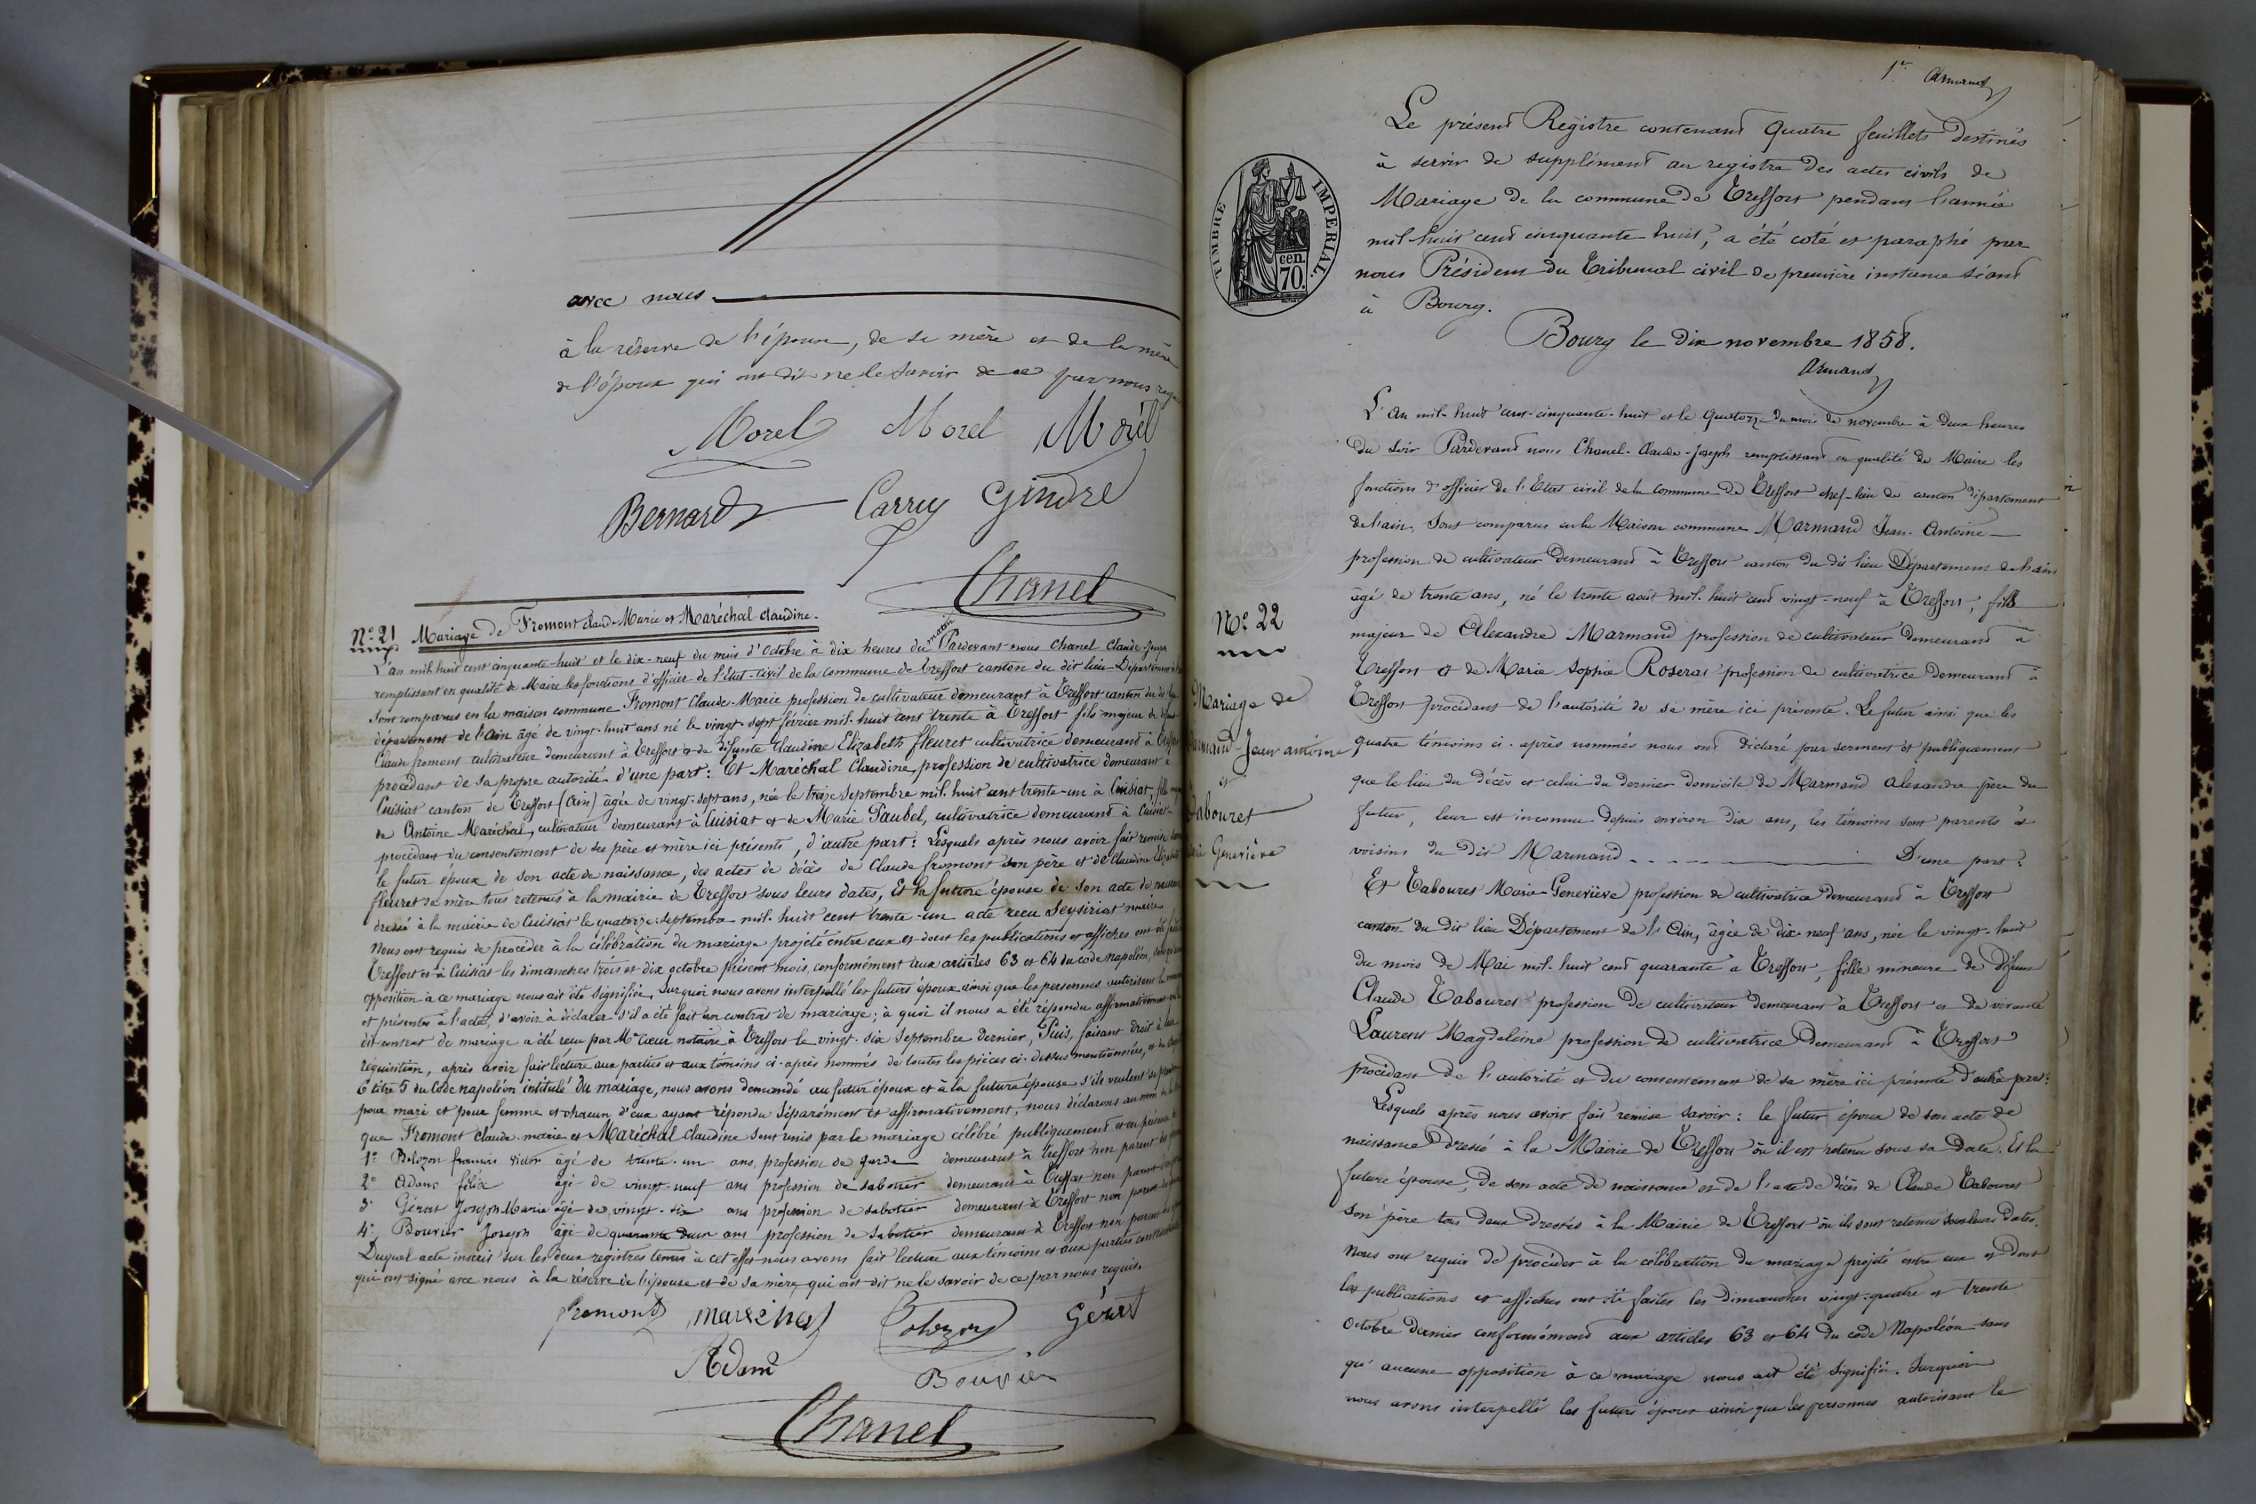 avec nous
à la réserve de l'épouse, de sa mère et de la mère
de l'époux qui ont dit ne le savoir de ce par nous
Morel Morel Morel
Bernard Carry Gindre
Chanel
N° 21 Mariage de Fromont Claude Marie et Maréchal Claudine.
L'an mil huit cent cinquante-huit et le dix-neuf du mois d'Octobre à dix heures du matin Pardevant nous Chanel Claude-Joseph
remplissant en qualité de Maire les fonctions d'officier de l'État-civil de la commune de Treffort canton du dit lieu Département
Sont comparus en la maison commune Fromont Claude-Marie profession de cultivateur demeurant à Treffort canton du dit lieu
département de l'ain âgé de vingt-huit ans né le vingt-sept février mil-huit cent trente à Treffort fils majeur de défunt
Claude fromont cultivateur demeurant à Treffort et de défunte Claudine Elizabeth fleuret cultivatrice demeurant à Treffort
procédant de sa propre autorité d'une part: Et Maréchal Claudine, profession de cultivatrice demeurant à
Cuisiat canton de Treffort (Ain) âgée de vingt-sept ans, née le treize Septembre mil-huit cent trente-un à Cuisiat, fille
de Antoine Maréchal, cultivateur demeurant à Cuisiat et de Marie Paubel, cultivatrice demeurant à Cuisiat
procédant du consentement de ses père et mère ici présents, d'autre part: Lesquels après nous avoir fait remise
le futur époux de son acte de naissance, des actes de décès de Claude fromont son père et de Claudine Elizabeth
fleuret sa mère tous retenus à la mairie de Treffort sous leurs dates, Et la future épouse de son acte de naissance
dressé à la mairie de Cuisiat le quatorze Septembre mil-huit cent trente-un acte reçu Seysiriat maire
Nous ont requis de procéder à la célébration du mariage projeté entre eux et dont les publications et affiches ont été
Treffort et à Cuisiat les dimanches trois et dix octobre présent mois, conformément aux articles 63 et 64 du code napoléon,
opposition à ce mariage nous ait été signifiée. Surquoi nous avons interpellé les futurs époux ainsi que les personnes autorisant le
et présentes à l'acte, d'avoir à déclarer s'il a été fait un contrat de mariage; à quoi il nous a été répondu affirmativement
dit contrat de mariage a été reçu par Me Cœur notaire à Treffort le vingt-six Septembre dernier, Puis, faisant droit à leur
réquisition, après avoir fait lecture aux parties et aux témoins ci-après nommés de toutes les pièces ci-dessus mentionnées, et du
6 titre 5 du Code napoléon intitulé du mariage, nous avons demandé au futur époux et à la future épouse s'ils veulent se prendre
pour mari et pour femme et chacun d'eux ayant répondu séparément et affirmativement, nous déclarons au nom de la
que Fromont Claude-marie et Maréchal Claudine sont unis par le mariage célébré publiquement et en présence de
1° Bolozon francois victor âgé de trente-un ans, profession de garde demeurant à Treffort non parent des
2° Adam félix âgé de vingt-neuf ans profession de sabotier demeurant à Treffort non parent
3° Gérat Joseph Marie âgé de vingt-six ans profession de sabotier demeurant à Treffort non parent
4° Bouvier Joseph âgé de quarante deux ans profession de Sabotier demeurant à Treffort non parent
Duquel acte inscrit sur les deux registres tenus à cet effet nous avons fait lecture aux témoins et aux parties contractantes
qui ont signé avec nous à la réserve de l'épouse et de sa mère qui ont dit ne le savoir de ce par nous requis.
fromont marechal Bolozon Gérat
Adam Bouvier
Chanel
1er Armand
Le présent Registre contenant Quatre feuillets destinés
à servir de supplément au registre des actes civils de
Mariage de la commune de Treffort pendant l'année
mil huit cent cinquante huit, a été coté et paraphé par
nous Président du Tribunal civil de première instance séant
à Bourg.
TIMBRE IMPERIAL.
cen. 70.
Bourg le dix novembre 1858.
Armand
L'an mil-huit cent-cinquante-huit et le Quatorze du mois de novembre à deux heures
du soir Pardevant nous Chanel-Claude-Joseph remplissant en qualité de Maire les
fonctions d'officier de l'État civil de la commune de Treffort chef-lieu de canton département
de l'ain, Sont comparus en la Maison commune Marmand Jean-Antoine
profession de cultivateur demeurant à Treffort canton du dit lieu Département de l'ain
âgé de trente ans, né le trente août mil-huit cent vingt-neuf à Treffort, fils
majeur de Alexandre Marmand profession de cultivateur demeurant à
Treffort et de Marie Sophie Roseras profession de cultivatrice demeurant à
Treffort procédant de l'autorité de sa mère ici présente. Le futur ainsi que les
quatre témoins ci-après nommés nous ont déclaré par serment et publiquement
que le lieu du décès et celui du dernier domicile de Marmand Alexandre père du
futur, leur est inconnu depuis environ dix ans, les témoins sont parents et
voisins du dit Marmand D'une part:
N° 22
Mariage de
Marmand Jean antoine
et
Tabouret
Marie Geneviève
Et Tabouret Marie-Geneviève profession de cultivatrice demeurant à Treffort
canton du dit lieu Département de l'Ain, âgée de dix-neuf ans, née le vingt-huit
du mois de Mai mil-huit cent quarante à Treffort, fille mineure de défunt
Claude Tabouret profession de cultivateur demeurant à Treffort et de vivante
Laurent Magdeleine profession de cultivatrice demeurant à Treffort
procédant de l'autorité et du consentement de sa mère ici présente d'autre part:
Lesquels après nous avoir fait remise savoir: le futur époux de son acte de
naissance dressé à la Mairie de Treffort où il est retenu sous sa date. Et la
future épouse, de son acte de naissance et de l'acte de décès de Claude Tabouret
son père tous deux dressés à la Mairie de Treffort où ils sont retenus sous leurs dates.
Nous ont requis de procéder à la célébration du mariage projeté entre eux et dont
les publications et affiches ont été faites les Dimanches vingt-quatre et trente
Octobre dernier conformément aux articles 63 et 64 du code Napoléon sans
qu'aucune opposition à ce mariage nous ait été signifiée. Surquoi
nous avons interpellé les futurs époux ainsi que les personnes autorisant le